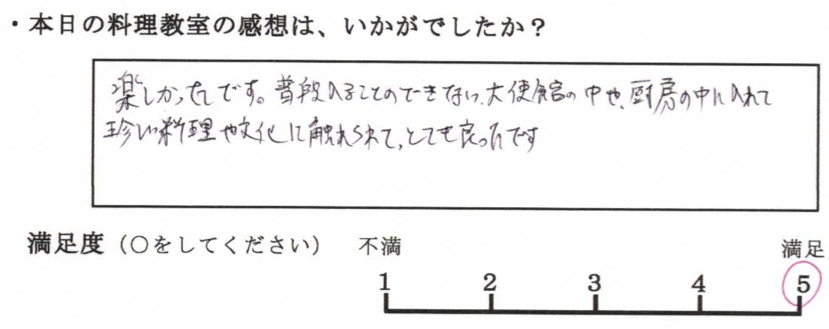 ・本日の料理教室の感想は、いかがでしたか？
楽しかったです。普段入ることのできない、大使館の中や、厨房の中に入れて
珍しい料理や文化に触れられて、とても良ったです
満足度（○をしてください） 不満 満足
1 2 3 4 5